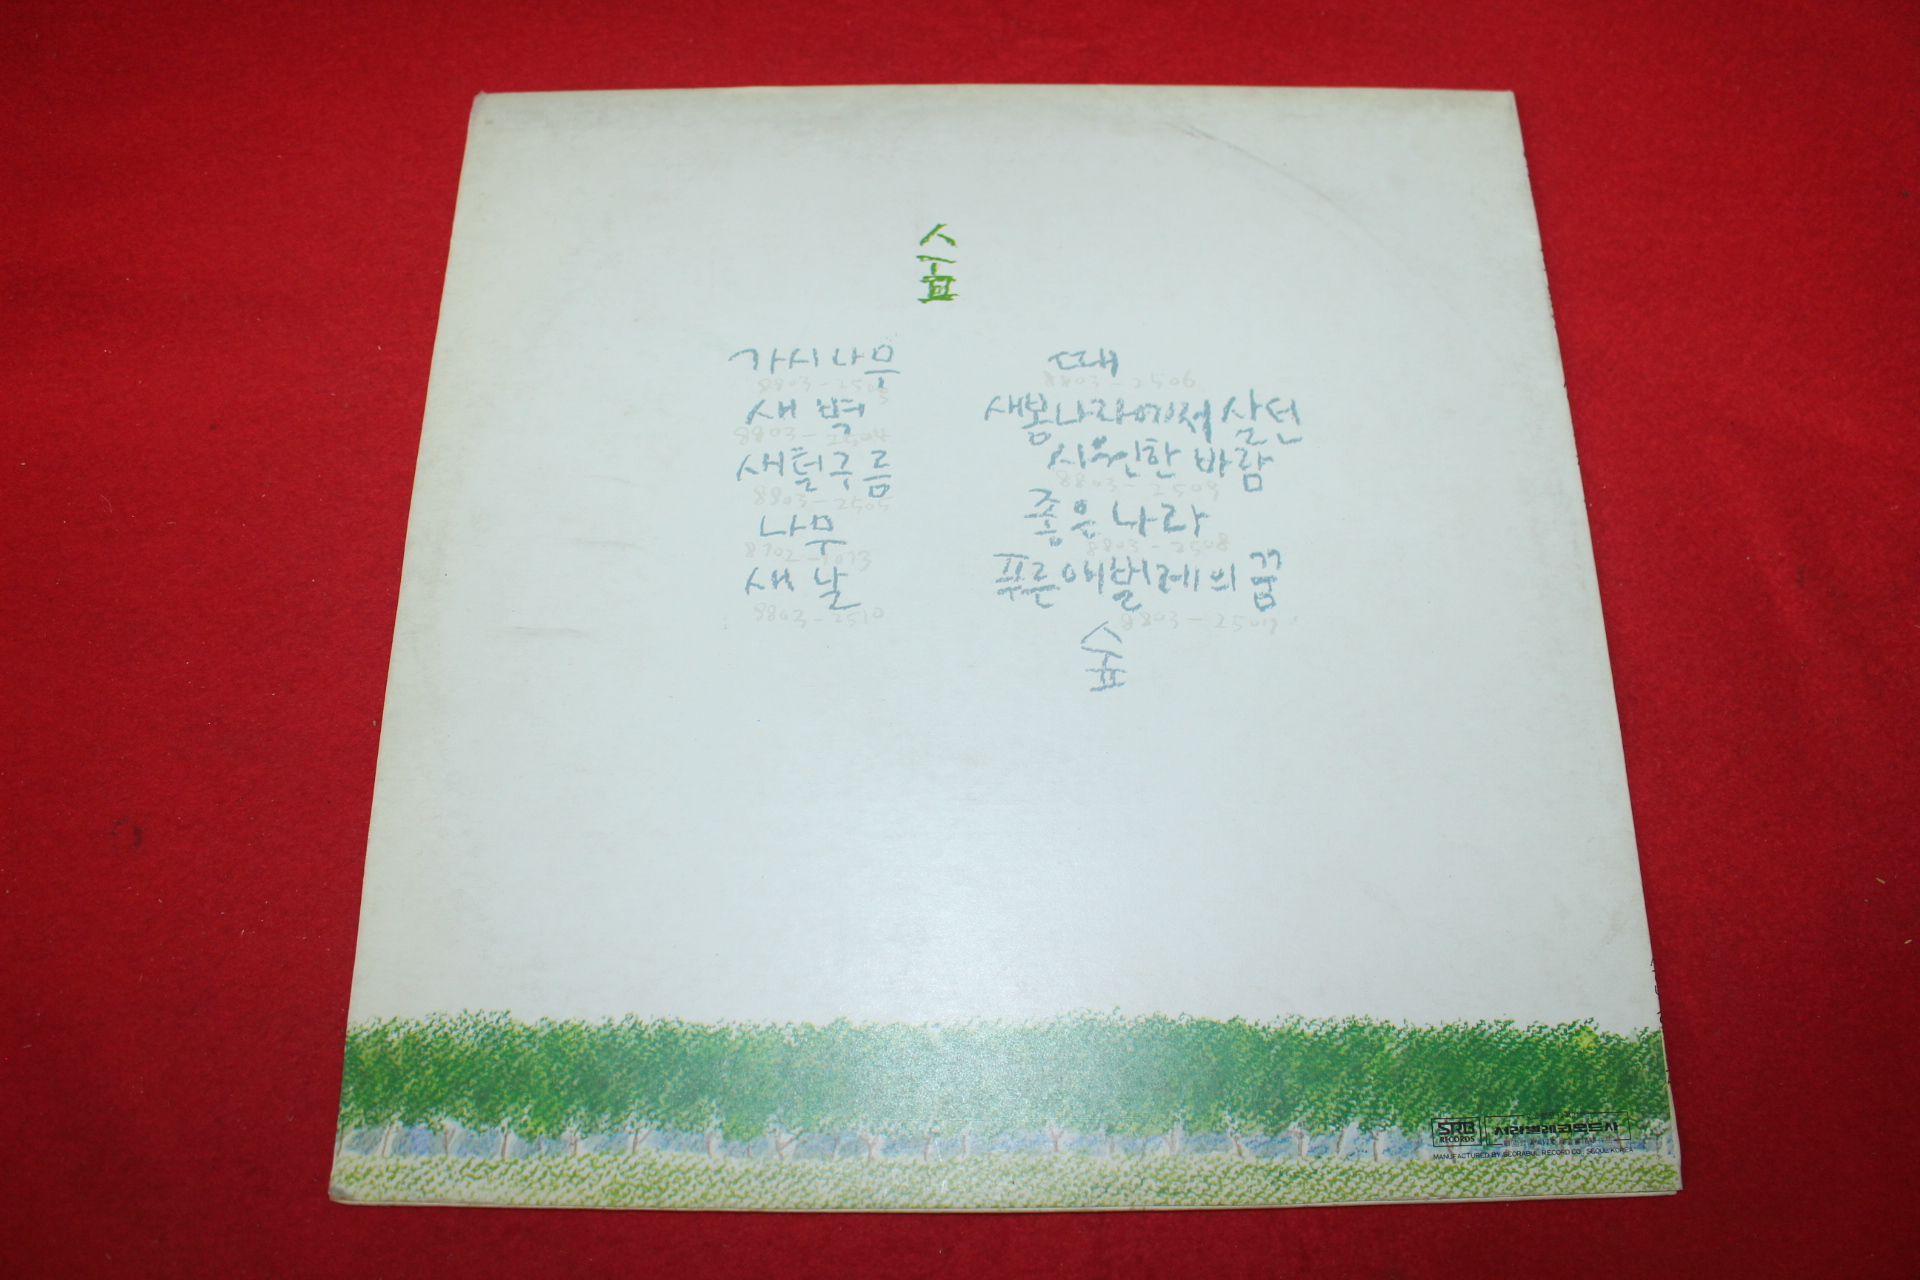 숲
가시나무
8803-2503
새벽
8803-2504
새털구름
8803-2505
나무
8702-1073
새날
8803-2510
때
8803-2506
새봄나라에서 살던
시원한 바람
8803-2509
좋은 나라
8803-2508
푸른 애벌레의 꿈
8803-2507
숲
SRB
RECORDS
서라벌레코드사
MANUFACTURED BY SEORABUL RECORD CO., SEOUL KOREA